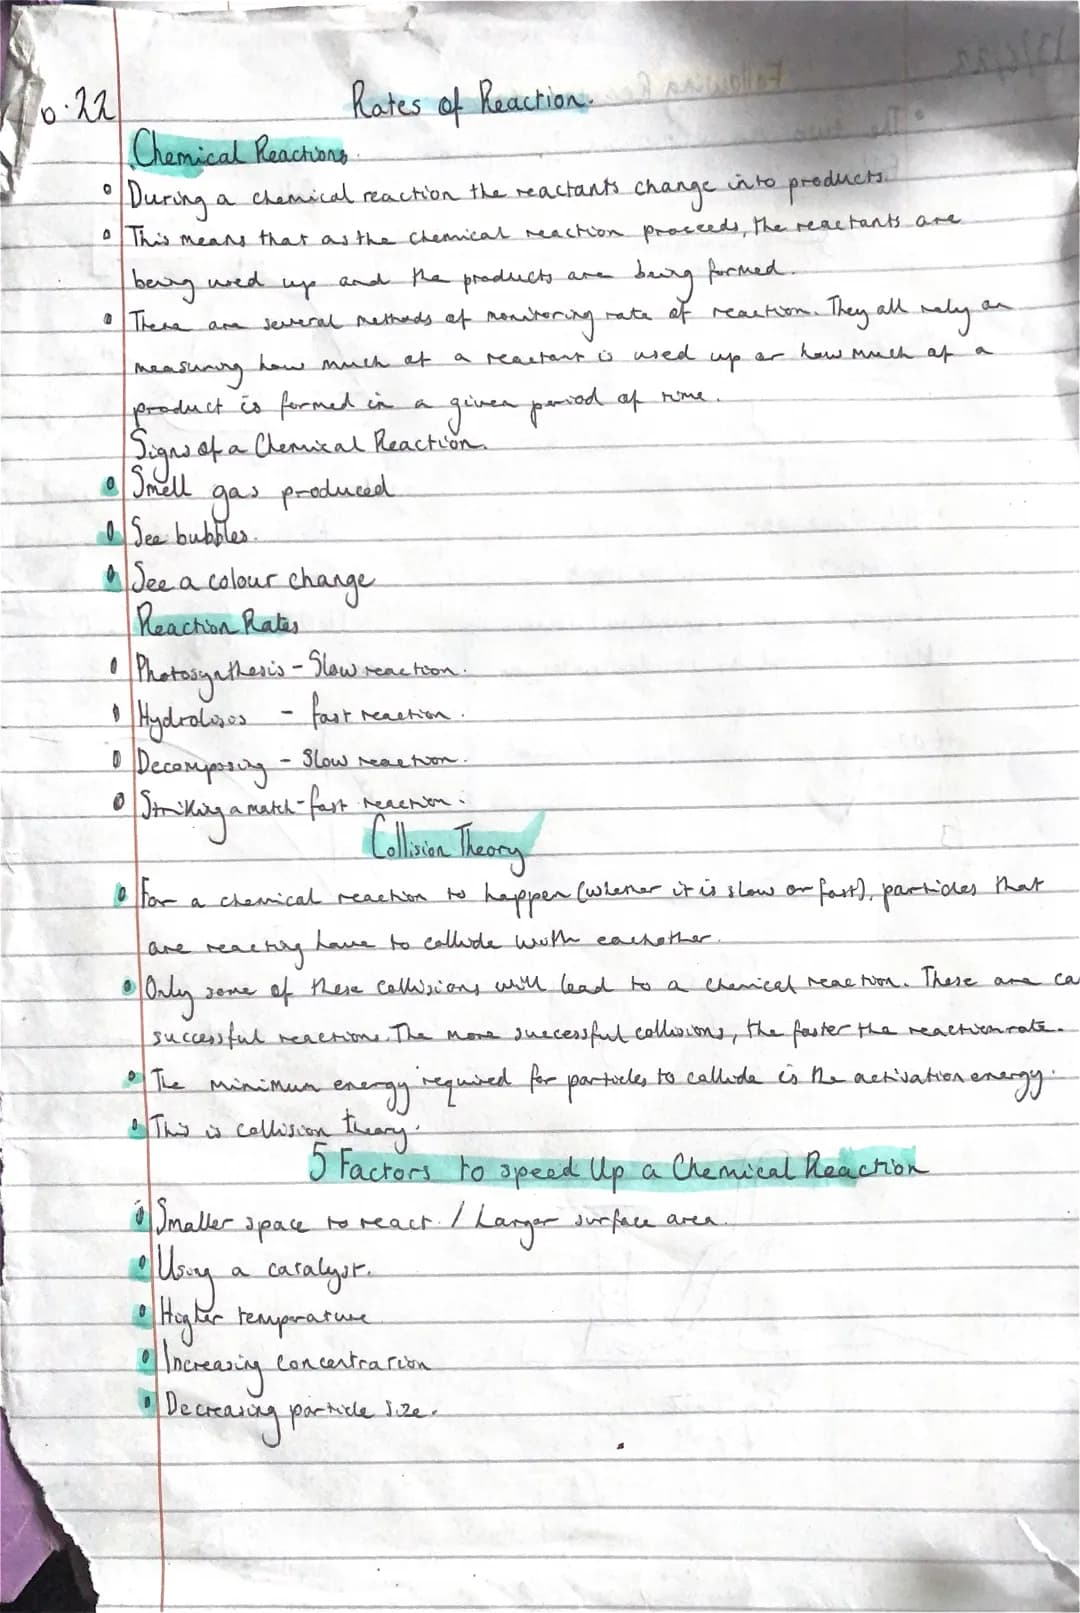 6.22
Rates of Reaction.
Chemical Reactions.
During a chemical reaction the reactants change into products.
This means that as the chemical reaction proceeds, the reactants are
being used up and the products are being formed.
There are several methods of monitoring rate of reaction. They all rely on
measuring how much of a reactant is used up or how much of a
product is formed in a given period of time.
Signs of a Chemical Reaction.
Smell gas produced
See bubbles.
See a colour change
Reaction Rates
Photosynthesis - Slow reaction.
- fast reaction.
Decomposing - Slow reaction.
Striking a match - fast reaction.
Collision Theory
For a chemical reaction to happen (whener it is slow or fast), particles that
are reacting have to collide with eachother.
Only some of these collisions will lead to a chemical reaction. These are ca
successful reactions. The more successful collisions, the faster the reaction rate.
The minimum energy required for particles to collide is the activation energy.
This is collision theory.
5 Factors to speed Up a Chemical Reaction
Smaller space to react. / Larger surface area.
Using a catalyst.
Higher temperature
Increasing Concentration
Decreasing particle size.